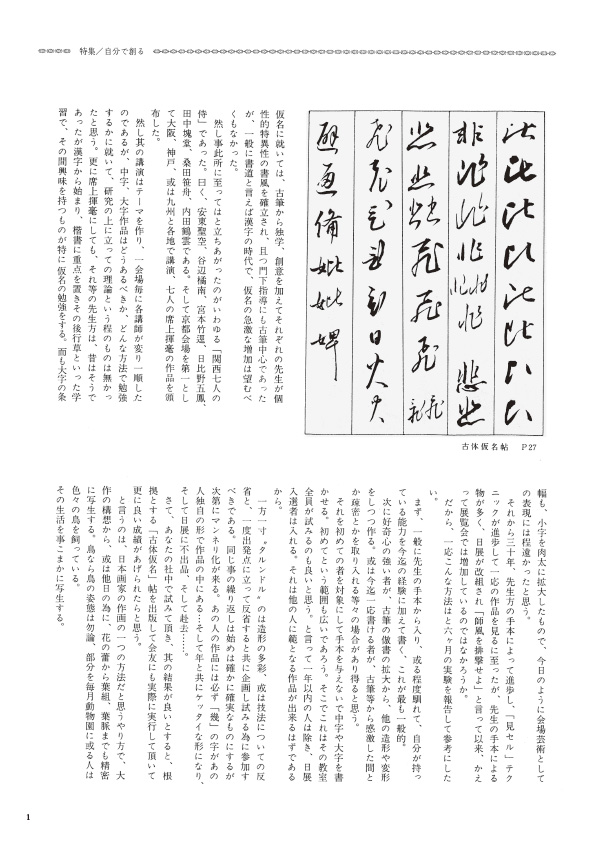 特集／自分で創る
仮名に就いては、古筆から独学、創意を加えてそれぞれの先生が個
性的特異性の書風を確立され、且つ門下指導にも古筆中心であった
が、一般に書道と言えば漢字の時代で、仮名の急激な増加は望むべ
くもなかった。
然し事此所に至ってはと立ちあがったのがいわゆる「関西七人の
侍」であった。曰く、安東聖空、谷辺橘南、宮本竹逕、日比野五鳳、
田中塊堂、桑田笹舟、内田鶴雲である。そして京都会場を第一とし
て大阪、神戸、或は九州と各地で講演、七人の席上揮毫の作品を頒
布した。
然し其の講演はテーマを作り、一会場毎に各講師が変り一順した
のであるが、中字、大字作品はどうあるべきか、どんな方法で勉強
するかに就いて、研究の上に立っての理論という程のものは無かっ
たと思う。更に席上揮毫にしても、それ等の先生方は、昔はそうで
あったが漢字から始まり、楷書に重点を置きその後行草といった学
習で、その間興味を持つものが特に仮名の勉強をする。而も大字の条
古体仮名帖　P27
幅も、小字を肉太に拡大したもので、今日のように会場芸術として
の表現には程遠かったと思う。
それから三十年、先生方の手本によって進歩し、「見セル」テク
ニックが進歩して一応の作品を見るに至ったが、先生の手本による
物が多く、日展が改組され「師風を排撃せよ」と言って以来、かえ
って展覧会では増加しているのではなかろうか。
だから、一応こんな方法はと六ヶ月の実験を報告して参考にした
い。
まず、一般に先生の手本から入り、或る程度馴れて、自分が持っ
ている能力を今迄の経験に加えて書く、これが最も一般的。
次に好奇心の強い者が、古筆の倣書の拡大から、他の造形や変形
をしつつ作る。或は今迄一応書ける者が、古筆等から感激した間と
か疎密とかを取り入れる等々の場合があり得ると思う。
それを初めての者を対象にして手本を与えないで中字や大字を書
かせる。初めてという範囲も広いであろう。そこでこれはその教室
全員が試みるのも良いと思う。と言って一年以内の人は除き、日展
入選者は入れる。それは他の人に範となる作品が出来るはずである
から。
一方一寸〝タルンドル〟のは造形の多彩、或は技法についての反
省と、一度出発点に立って反省すると共に企画し試みる為に参加す
べきである。同じ事の繰り返しは始めは確かに確実なものにするが
次第にマンネリ化が来る。あの人の作品には必ず「幾」の字があの
人独自の形で作品の中にある…そして年と共にケッタイな形になり、
そして日展に不出品、そして赴去……。
さて、あなたの社中で試みて頂き、其の結果が良いとすると、根
拠とする「古体仮名」帖を出版して会友にも実際に実行して頂いて
更に良い成績があげられたらと思う。
と言うのは、日本画家の作画の一つの方法だと思うやり方で、大
作の構想から、或は他日の為に、花の蕾から葉組、葉脈までも精密
に写生する。鳥なら鳥の姿態は勿論、部分を毎月動物園に或る人は
色々の鳥を飼っている。
その生活を事こまかに写生する。
1